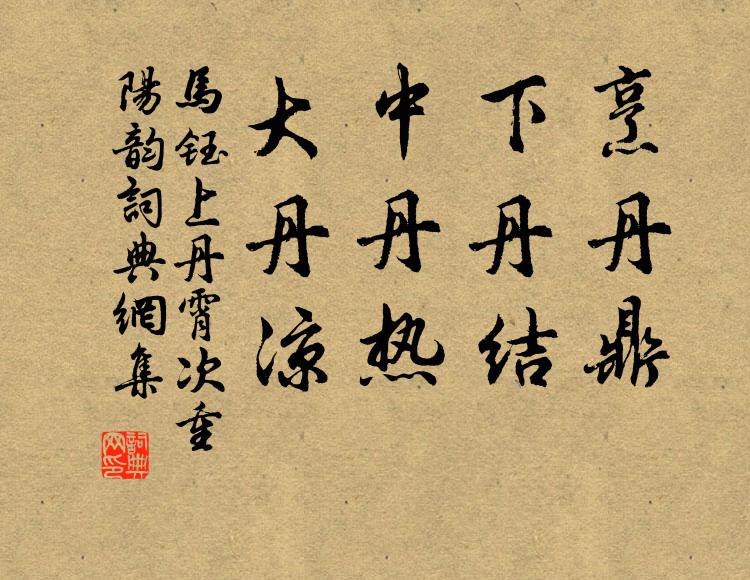 烹丹鼎
下丹結
中丹热
大丹凉
馬鈺上丹霄次重
陽韵詞典網集
詞典網印